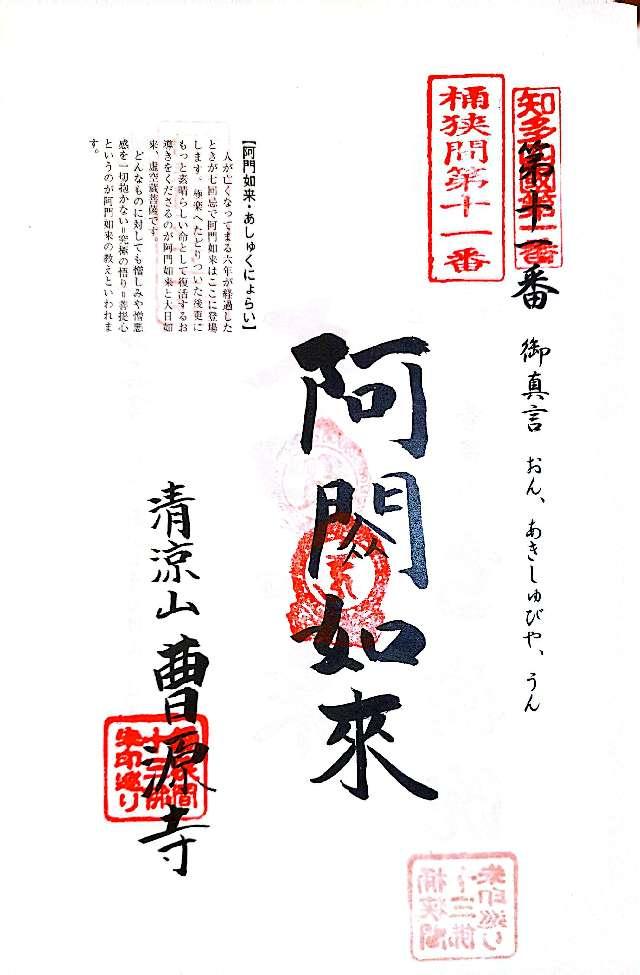 知多四國第一番
第十一番 御真言 おん、あきしゅびや、うん
桶狭間第十一番
阿閦如來
【阿閦如来・あしゅくにょらい】
人が亡くなってまる六年が経過した
ときが七回忌で阿閦如来はここに登場
します。極楽へたどりついた後更に
もっと素晴らしい命として復活するお
導きをくださるのが阿閦如来と大日如
来、虚空蔵菩薩です。
どんなものに対しても憎しみや憎悪
感を一切抱かない＝究極の悟り＝菩提心
というのが阿閦如来の教えといわれま
す。
清涼山 曹源寺
桶狭間
十三佛
朱印巡り